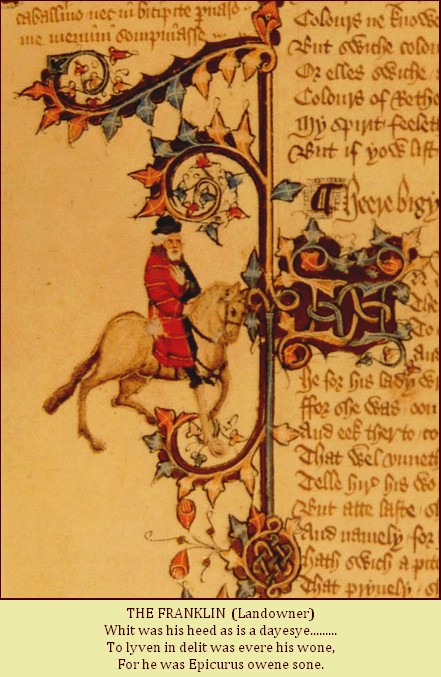 caballino nec in bicipite p̱naso
me memini sompniasse
Colours ne knowe
But swiche colour
Or elles swiche
Colours of Rethe
My spirit feeleth
But if yow list
Heere bigy
He for his lady w
ffor she was oon
And eek therto co
That wel vnneth
Telle hir his wo
But atte laste s
And namely for
Hath swich a pit
That pryuely
THE FRANKLIN (Landowner)
Whit was his heed as is a dayesye.........
To lyven in delit was evere his wone,
For he was Epicurus owene sone.